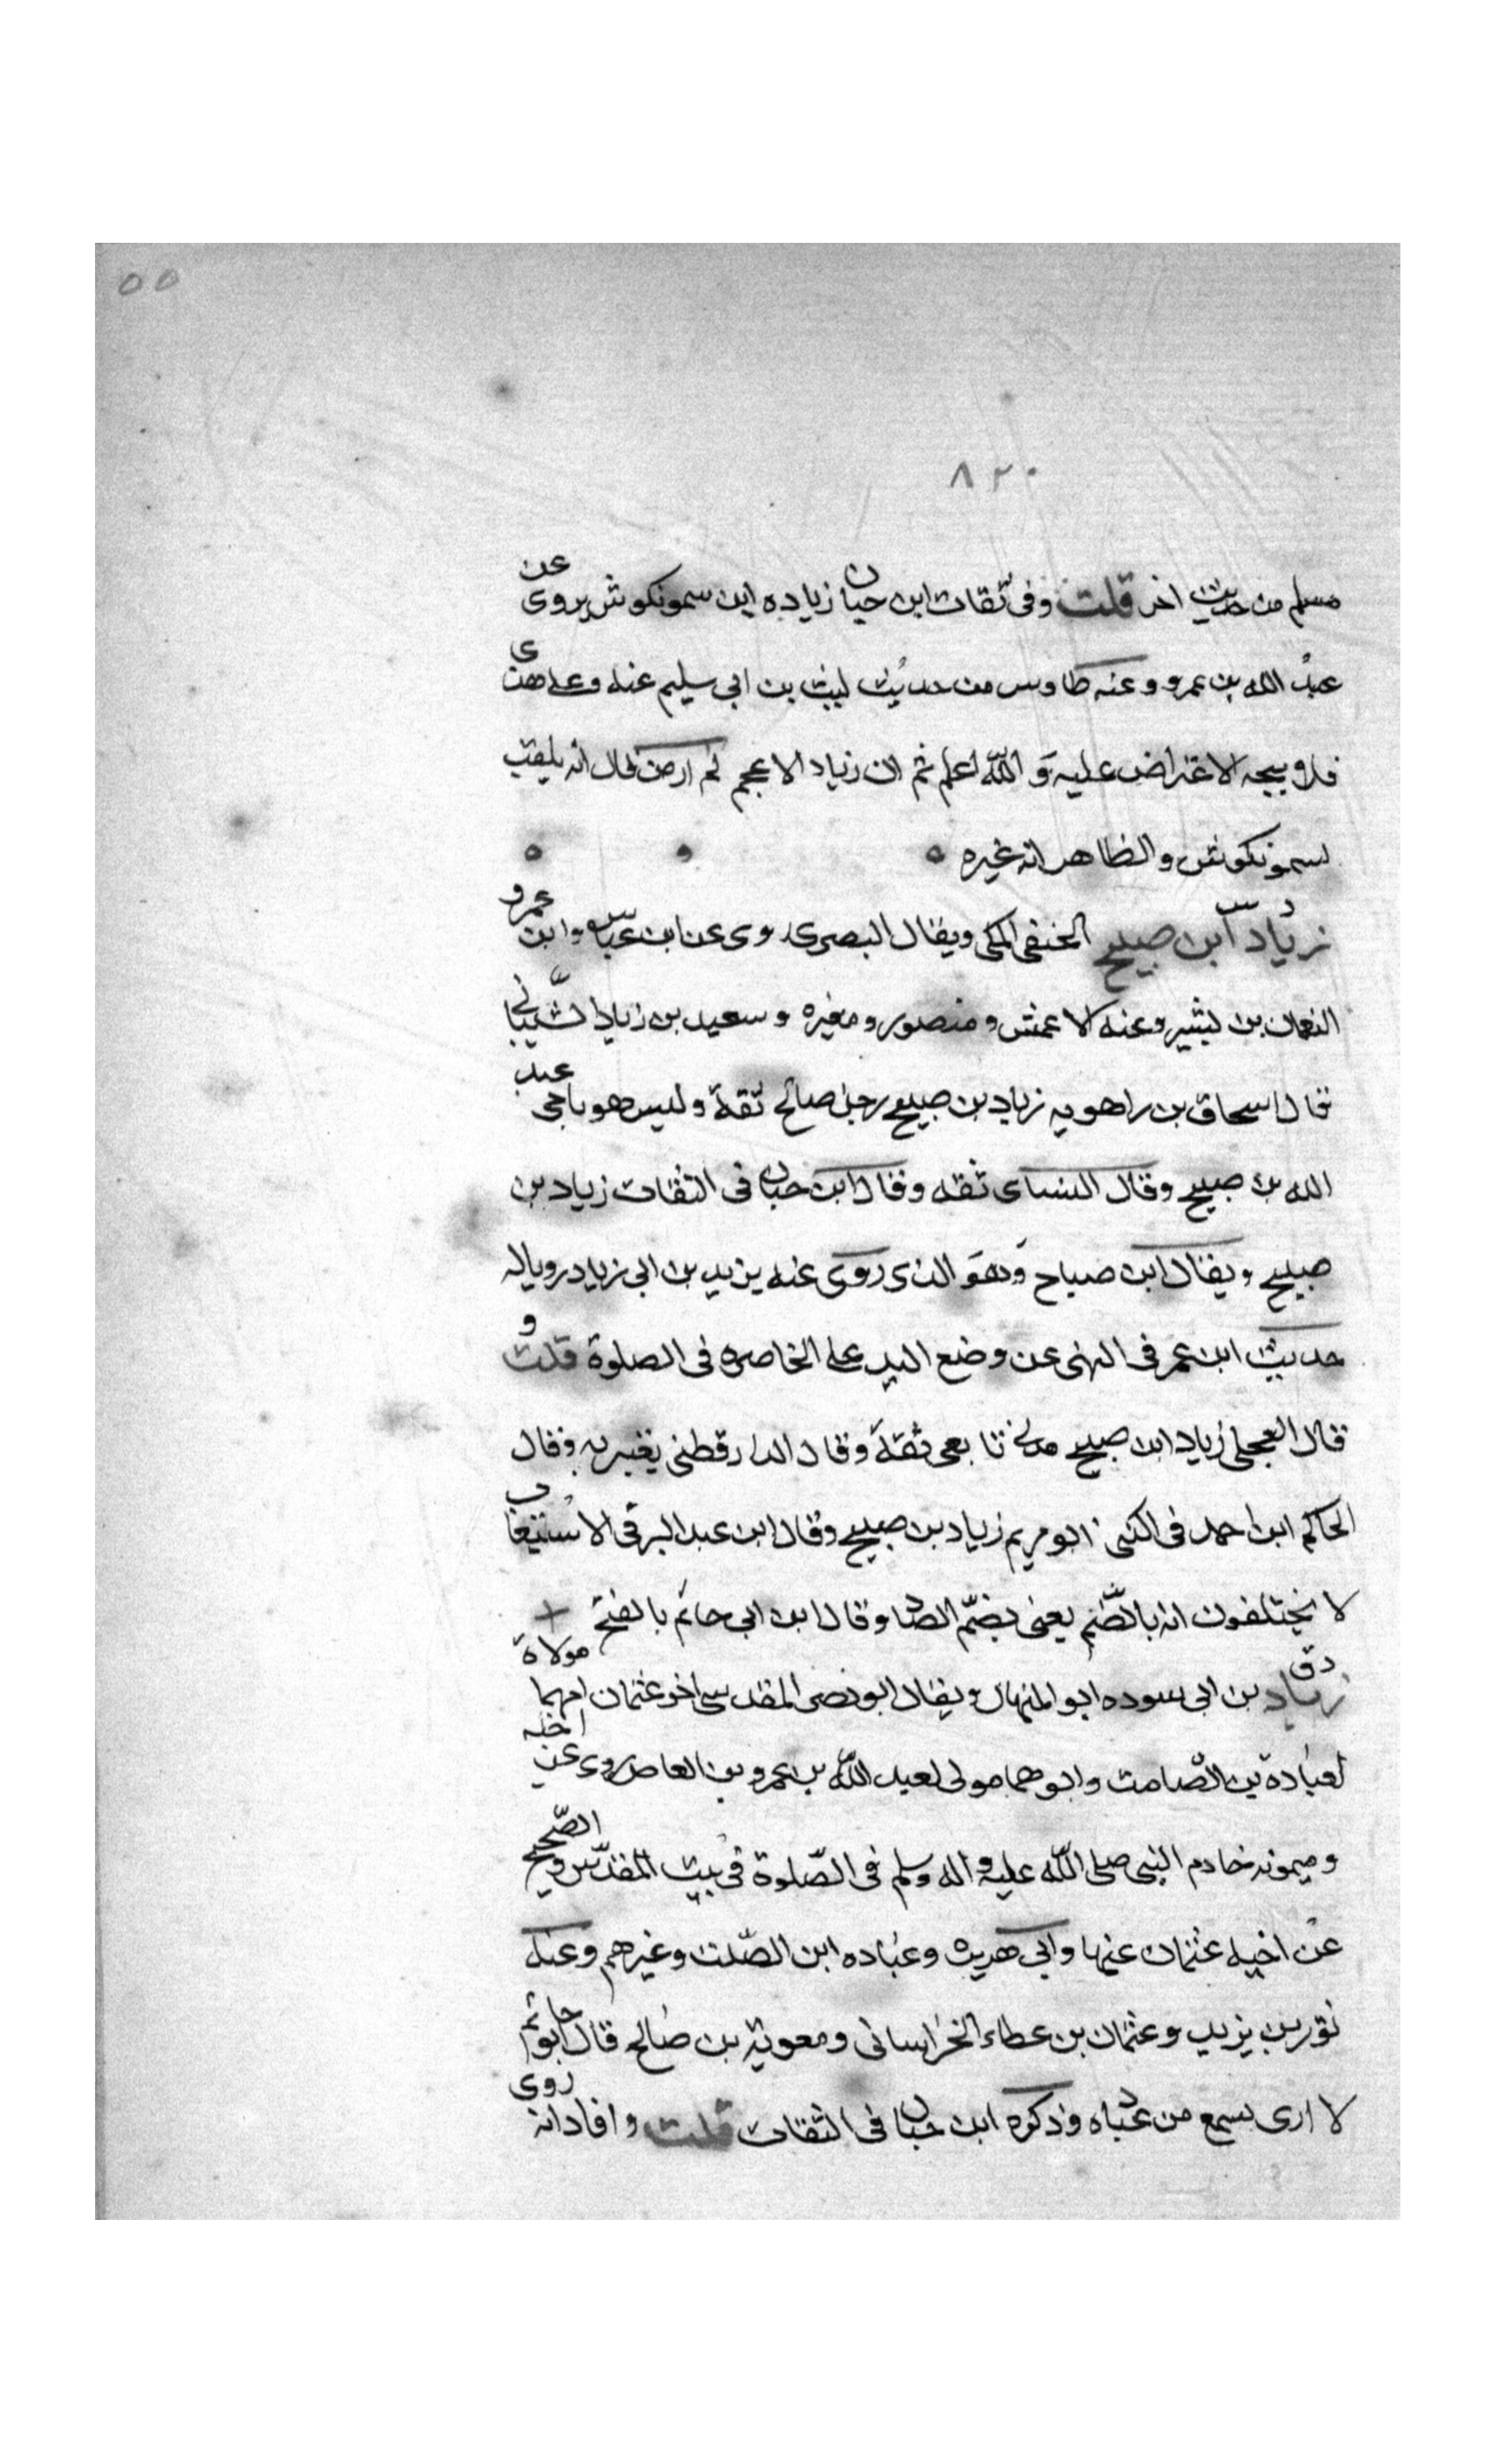 ٥٥
٨٢٠
مسلم من حديث اخر قلت وفى ثقات ابن حبان زياده ابن سمونكوش يروى عن
عبد الله بن عمرو وعنه طاوس من حديث ليث بن ابى سليم عنه وعلى هذى
فلا ويتجه الاعتراض عليه و الله اعلم ثم ان زياد الاعجم لم ار من قال انه يلقب
سمونكوش والظاهر انه غيره
د س
زياد ابن صبيح الحنفى المكى ويقال البصرى روى عن ابن عباس وابن عمرو
النعمان بن بشير وعنه الاعمش و منصور و مغيره و سعيد بن زياد الشيبانى
قال اسحاق بن راهويه زياد بن صبيح رجل صالح ثقة وليس هو باخى عبد
الله بن صبيح وقال النساى ثقه وقال ابن حبان فى الثقات زياد بن
صبيح ويقال ابن صباح وهو الذى روى عنه يزيد بن ابى زياد رويا له
حديث ابن عمر فى النهى عن وضع اليد على الخاصره فى الصلوة قلت و
قال العجلى زياد ابن صبيح مدنى تابعى ثقة وقال الدارقطنى يغبر به وقال
الحاكم ابن احمد فى الكنى ابو مريم زياد بن صبيح وقال ابن عبد البر فى الاستيعاب
لا يختلفون انه بالضم يعنى بضم الصاد وقال ابن ابى حاتم بالفتح
د ق
زياد بن ابى سوده ابو المنهال ويقال ابو نصر المقدسى اخو عثمان امهما مولاة
لعبادة بن الصامت وابوهما مولى لعبد الله بن عمرو بن العاص روى عن اخيه
و ميمونه خادم النبى صلى الله عليه و اله وسلم فى الصلوة فى بيت المقدس و الصحيح
عن اخيه عثمان عنها وابى هريره وعباده ابن الصلت وغيرهم وعنه
ثور بن يزيد وعثمان بن عطاء الخراسانى ومعوية بن صالح قال ابو حاتم
لا ارى سمع من عباده وذكره ابن حبان فى الثقات قلت وافاد انه روى